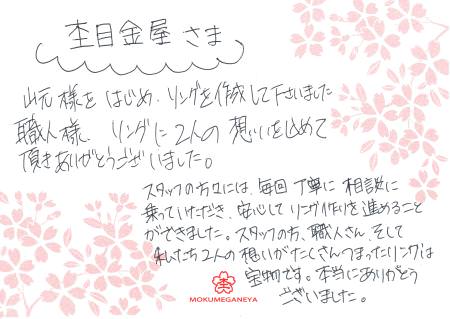 杢目金屋 さま
山元様をはじめ、リングを作成して下さいました
職人様、リングに2人の想いを込めて
頂きありがとうございました。
スタッフの方々には、毎回丁寧に相談に
乗っていただき、安心してリング作りを進めること
ができました。スタッフの方、職人さん、そして
私たち2人の想いがたくさんつまったリングは
宝物です。本当にありがとう
ございました。
MOKUMEGANEYA